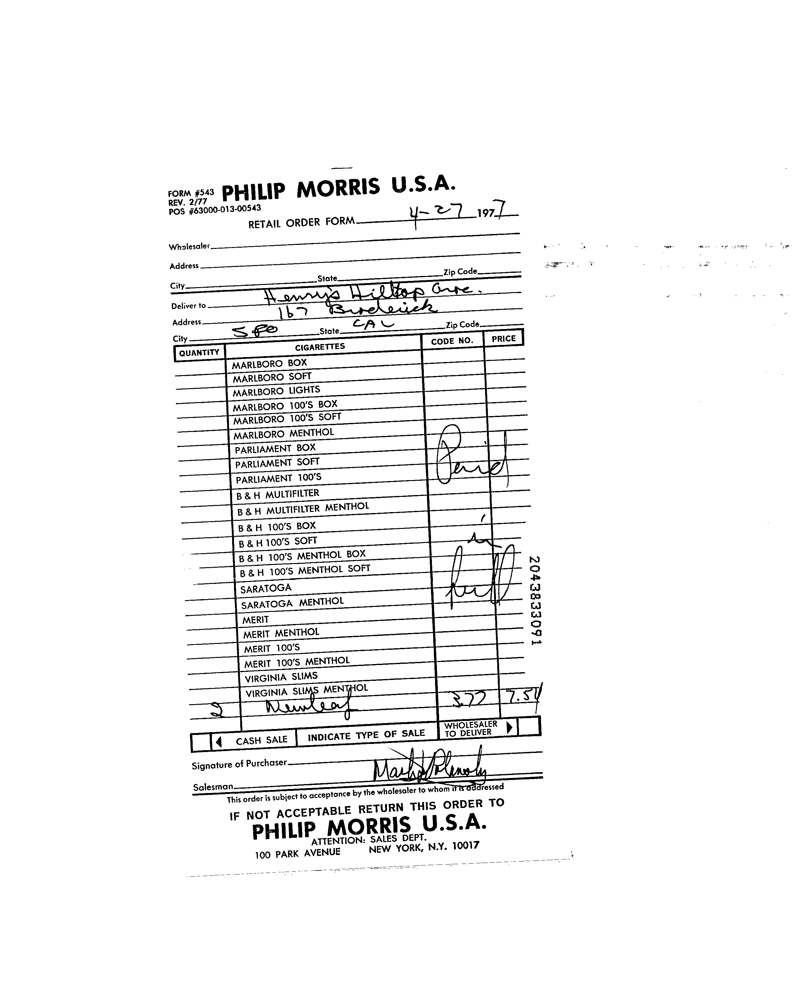 FORM #543 PHILIP MORRIS U.S.A.
REV. 2/77
POS #63000-013-00543
RETAIL ORDER FORM 4-27 1977
Wholesaler
Address
City State Zip Code
Deliver to Henry's Hilltop Groc.
Address 167 Broderick
City State CAL Zip Code
QUANTITY CIGARETTES CODE NO. PRICE
MARLBORO BOX
MARLBORO SOFT
MARLBORO LIGHTS
MARLBORO 100'S BOX
MARLBORO 100'S SOFT
MARLBORO MENTHOL
PARLIAMENT BOX
PARLIAMENT SOFT
PARLIAMENT 100'S
Paid
B & H MULTIFILTER
B & H MULTIFILTER MENTHOL
B & H 100'S BOX
B & H 100'S SOFT
in
B & H 100'S MENTHOL BOX
B & H 100'S MENTHOL SOFT
SARATOGA
full
SARATOGA MENTHOL
MERIT
MERIT MENTHOL
MERIT 100'S
MERIT 100'S MENTHOL
VIRGINIA SLIMS
VIRGINIA SLIMS MENTHOL
2 Newleaf 3.77 7.54
CASH SALE INDICATE TYPE OF SALE WHOLESALER TO DELIVER
Signature of Purchaser
Salesman
This order is subject to acceptance by the wholesaler to whom it is addressed
IF NOT ACCEPTABLE RETURN THIS ORDER TO
PHILIP MORRIS U.S.A.
ATTENTION: SALES DEPT.
100 PARK AVENUE NEW YORK, N.Y. 10017
2043833091